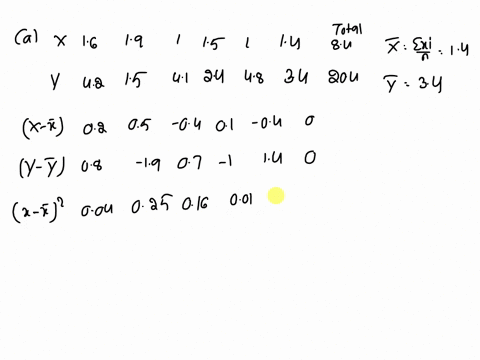 (a) X 1.6 1.9 1 1.5 1 1.4 Total 8.4 x̄ = Σxi/n = 1.4
Y 4.2 1.5 4.1 24 4.8 34 204 ȳ = 34
(X-x̄) 0.2 0.5 -0.4 0.1 -0.4 0
(Y-ȳ) 0.8 -1.9 0.7 -1 1.4 0
(x-x̄)² 0.04 0.25 0.16 0.01